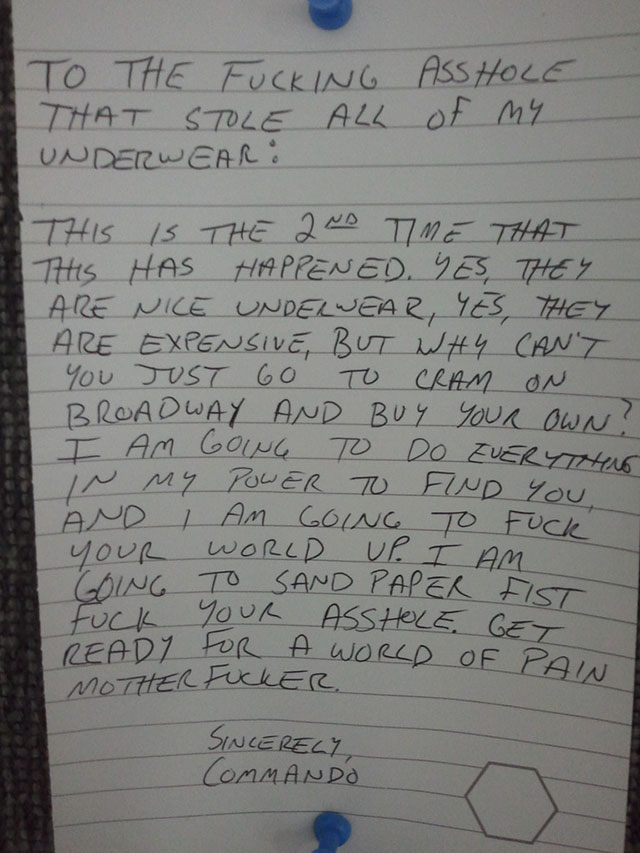 TO THE FUCKING ASSHOLE
THAT STOLE ALL OF MY
UNDERWEAR:
THIS IS THE 2ND TIME THAT
THIS HAS HAPPENED. YES, THEY
ARE NICE UNDERWEAR, YES, THEY
ARE EXPENSIVE, BUT WHY CAN'T
YOU JUST GO TO CRAM ON
BROADWAY AND BUY YOUR OWN?
I AM GOING TO DO EVERYTHING
IN MY POWER TO FIND YOU,
AND I AM GOING TO FUCK
YOUR WORLD UP. I AM
GOING TO SAND PAPER FIST
FUCK YOUR ASSHOLE. GET
READY FOR A WORLD OF PAIN
MOTHERFUCKER.
SINCERELY,
COMMANDO